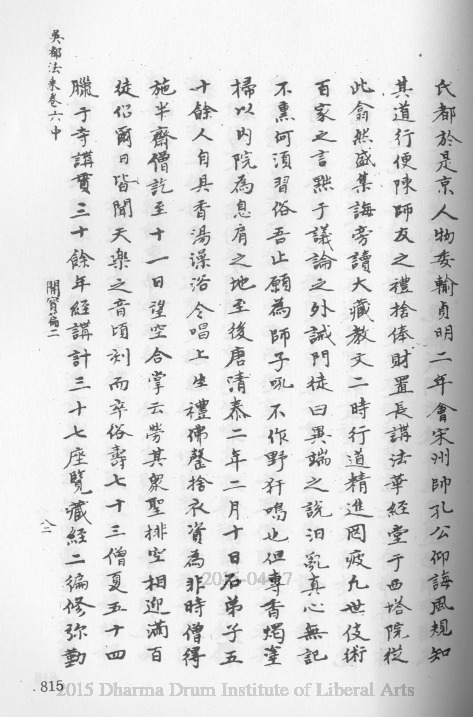 氏都於是京人物委輸貞明二年會宋州帥孔公仰誨風規知
其道行便陳師友之禮捨俸財置長講法華經堂于西塔院從
此翕然盛集誨旁讀大藏教文二時行道精進罔疲九世伎術
百家之言黙于議論之外誡門徒曰異端之說汩亂真心無記
不熏何須習俗吾止願為師子吼不作野犴鳴也但專香燭塗
掃以內院為息肩之地至後唐清泰二年二月十日召弟子五
十餘人自具香湯澡浴令唱上生禮佛罄捨衣資為非時僧得
施半齋僧訖至十一日望空合掌云勞其衆聖排空相迎滿百
徒侶爾日皆聞天樂之音頃刻而卒俗壽七十三僧夏五十四
臘于寺講貫三十餘年經講計三十七座覽藏經二編修弥勤
吳都法乘卷六中
開寶篇二
八二
815
2015 Dharma Drum Institute of Liberal Arts